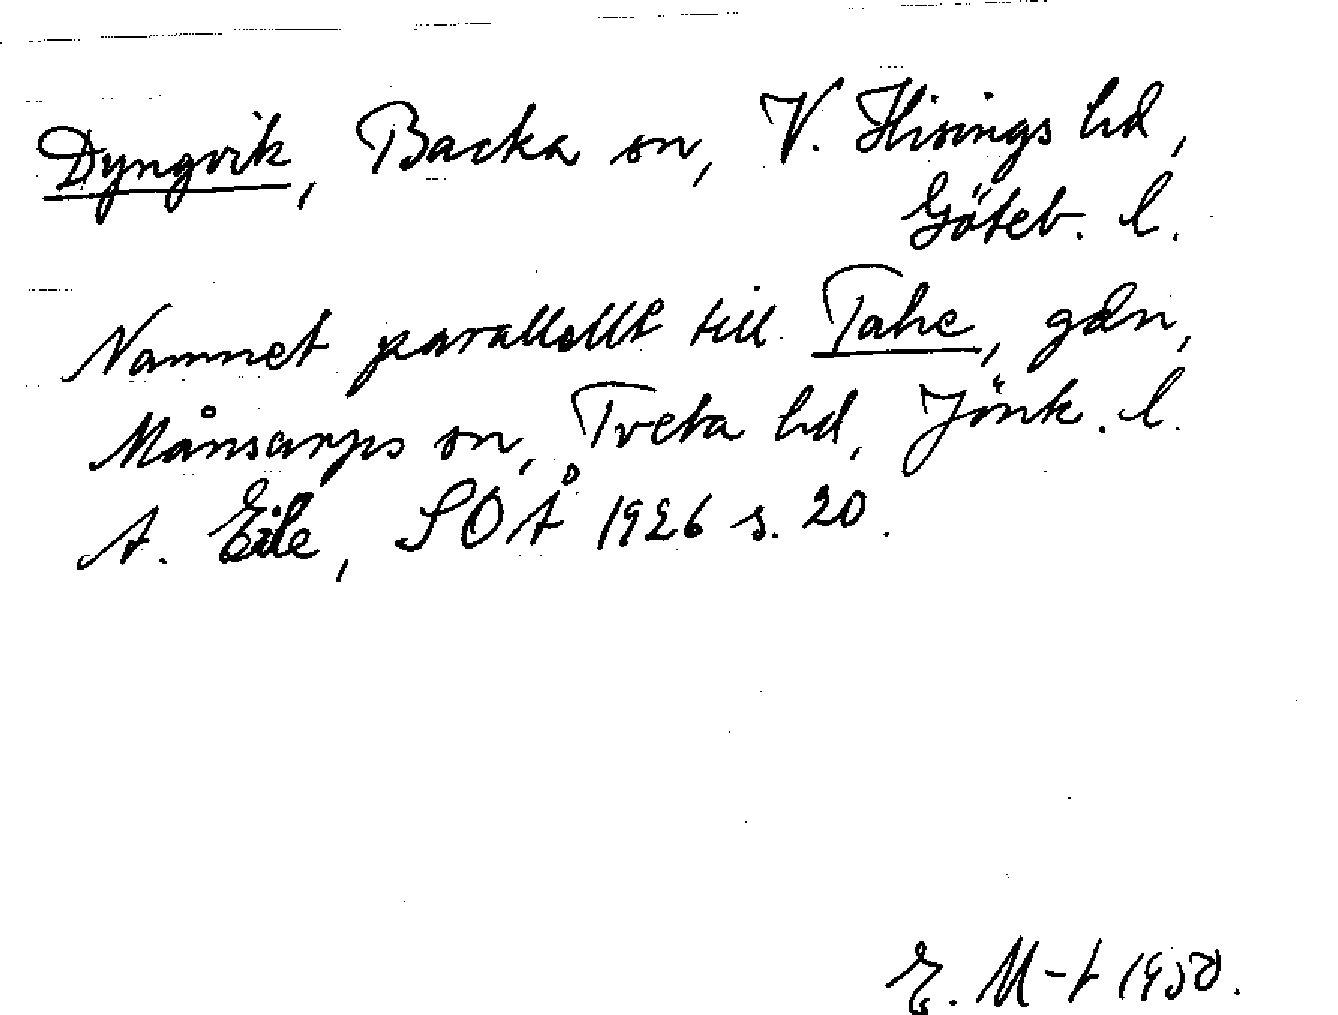 Dyngvik, Backa sn, V. Hisings hd,
Göteb. l.
Namnet parallellt till Tahe, gdn,
Månsarps sn, Tveta hd, Jönk. l.
A. Ejle, SOÅ 1926 s. 20.
E. M-t 1950.